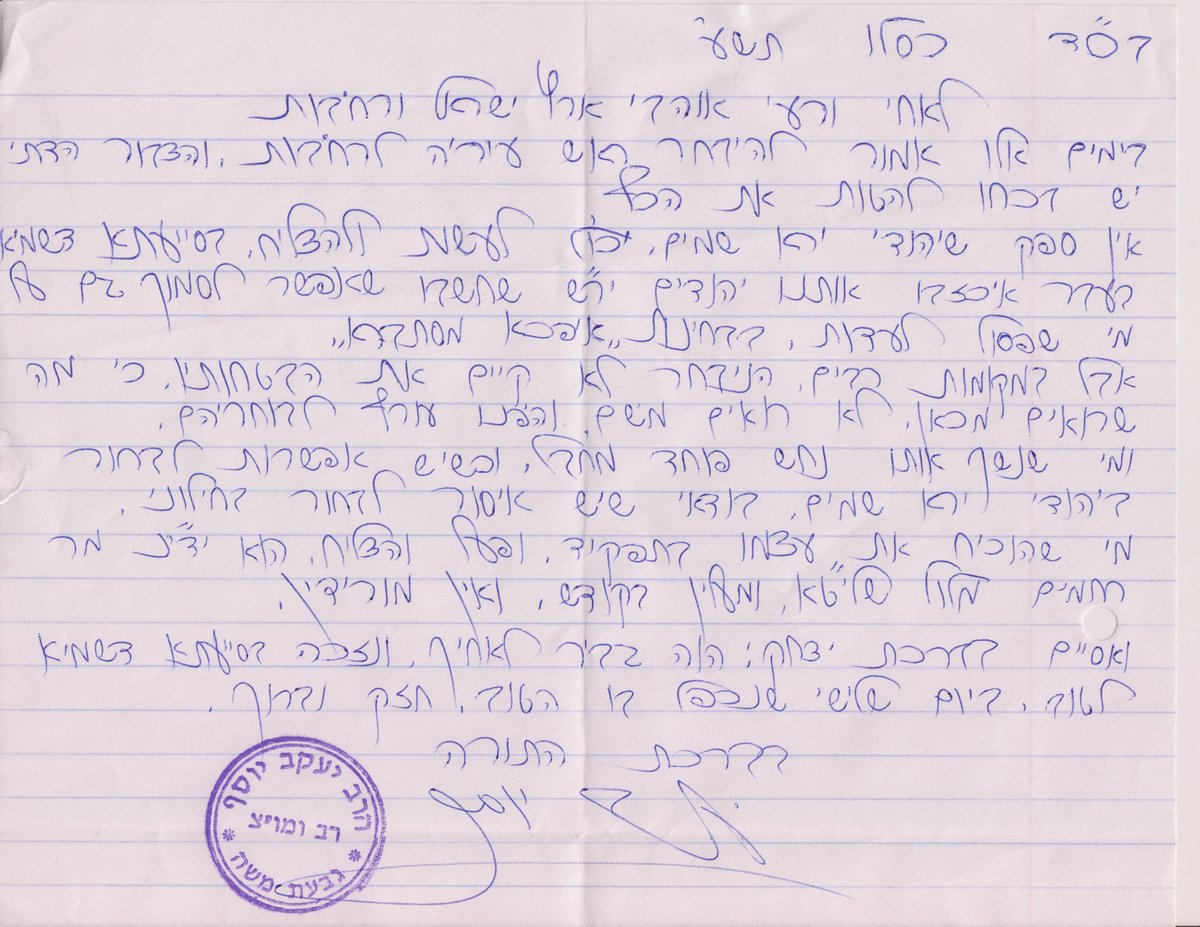 בס"ד כסלו תשע'
לאחי ורעי אוהבי ארץ ישראל ורחובות
בימים אלו אמור להיבחר ראש עירי'ה לרחובות, והצבור הדתי
יש בכחו להטות את הכף
אין ספק שיהודי ירא שמים, יכול לעשות ולהצליח, בסייעתא דשמיא
בעבר איכזבו אותנו יהודים יר"ש שחשבו שאפשר לסמוך גם על
מי שפסול לעדות, בבחינת "איפכא מסתברא"
אבל במקומות רבים, הניבחר לא קיים את הבטחותיו, כי מה
שרואים מכאן, לא רואים משם, והפנו עורף לבוחריהם,
ומי שנשך אותו נחש פוחד מחבל, וכשיש אפשרות לבחור
ביהודי ירא שמים, בודאי שיש איסור לבחור בחילוני,
מי שהוכיח את עצמו בתפקיד, ופעל והצליח, הוא ידי"נ מר
רחמים מלול שליט"א, ומעלין בקודש, ואין מורידין,
ואסיים בברכת יצחק: הוה גביר לאחיך, ונזכה בסיעתא דשמיא
לטוב, ביום שלישי שנכפל בו הטוב, חזק וברוך,
בברכת התורה
יוסף
הרב יעקב יוסף
רב ומו"צ
גבעת משה